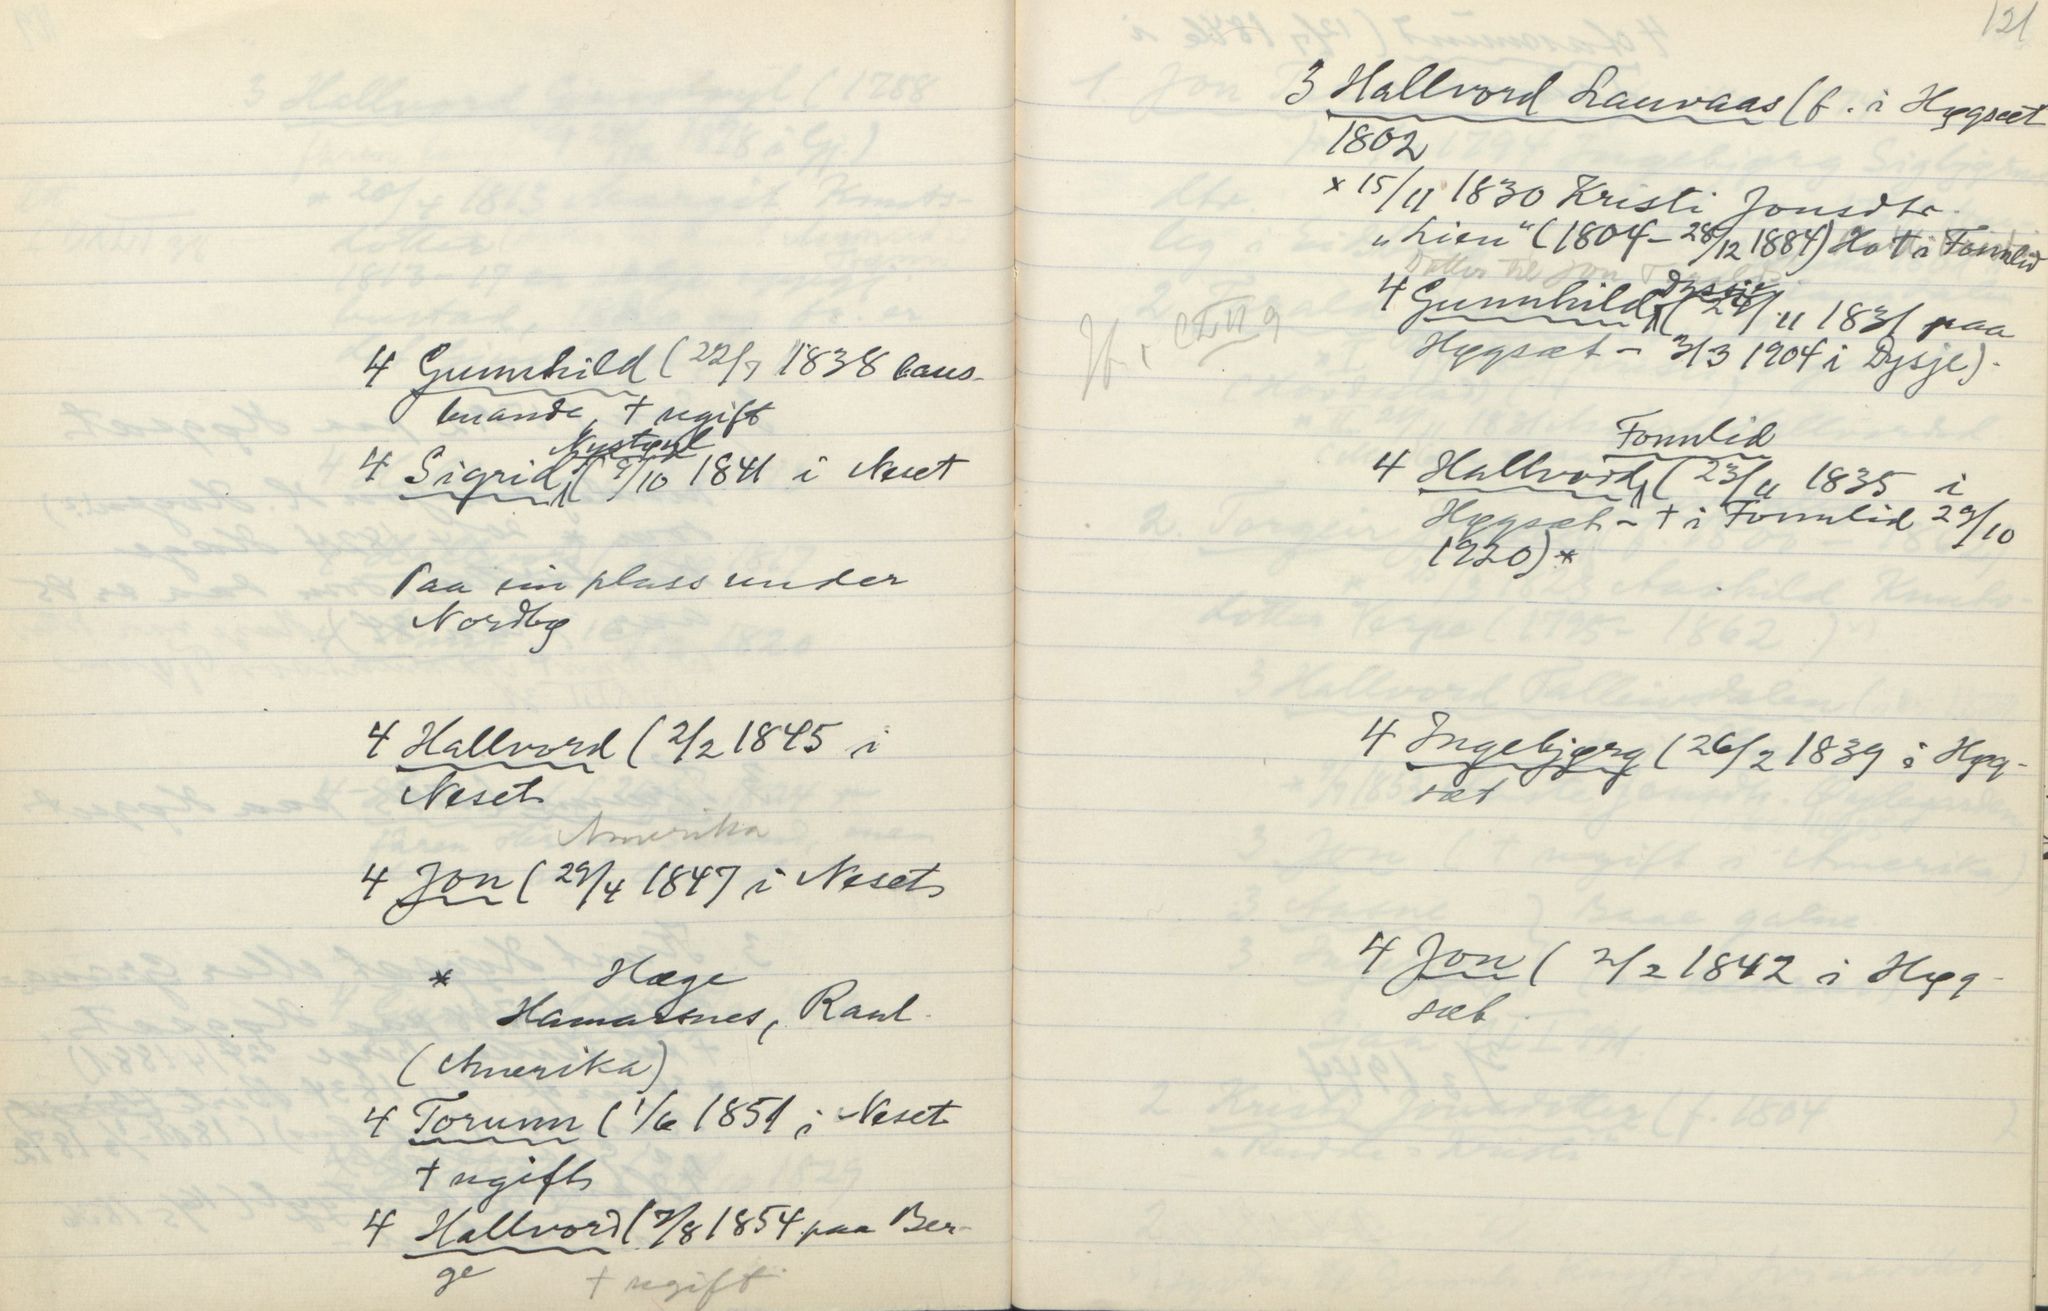 4 Gunnhild (22/7 1838 baus-
buande, † ugift
Nystøyl
4 Sigrid (9/10 1841 i Neset
Paa ein plass under
Nordbø
4 Hallvord (2/2 1845 i
Neset
Amerika
4 Jon (29/4 1847 i Neset
* Hæge
Hamarsnes, Raul.
(Amerika)
4 Torunn (1/6 1851 i Neset
† ugift
4 Hallvord (7/8 1854 paa Ber-
ge
† ugift
121
3 Hallvord Lauvaas (f. i Høgsæt
1802
× 15/11 1830 Kristi Jonsdtr.
"Lien" (1804 – 28/12 1884) Ho † i Fonnlid
Dotter til Jon
Dysje
4 Gunnhild (24/11 1831 paa
Høgsæt – 3/3 1904 i Dysje).
Jf.
Fonnlid
4 Hallvord (23/11 1835 i
Høgsæt – † i Fonnlid 29/10
1920)*
4 Ingebjørg (26/2 1839 i Høg-
sæt
4 Jon (2/2 1842 i Høg-
sæt.